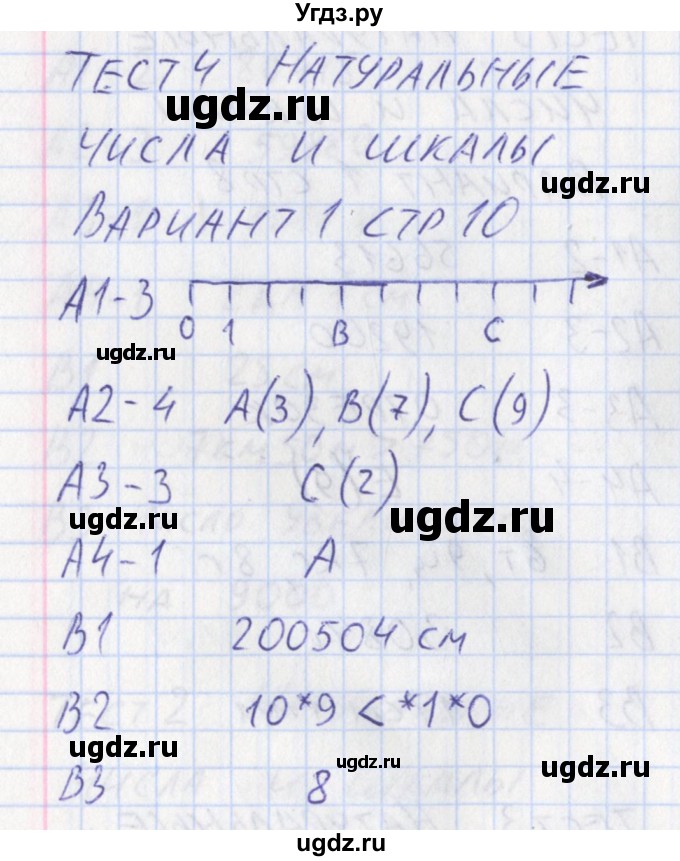 Угдз.ру
ТЕСТ 4 НАТУРАЛЬНЫЕ
ugdz.ru
ЧИСЛА И ШКАЛЫ
ugdz.ru
ВАРИАНТ 1 СТР 10
А1-3
0 1 В С
ugdz.ru
А2-4 А(3), В(7), С(9)
А3-3 С(2)
ugdz.ru
ugdz.ru
А4-1 А
В1 200504 см
В2 10*9 < *1*0
ugdz.ru
ugdz.ru
ugdz.ru
В3 8
ugdz.ru